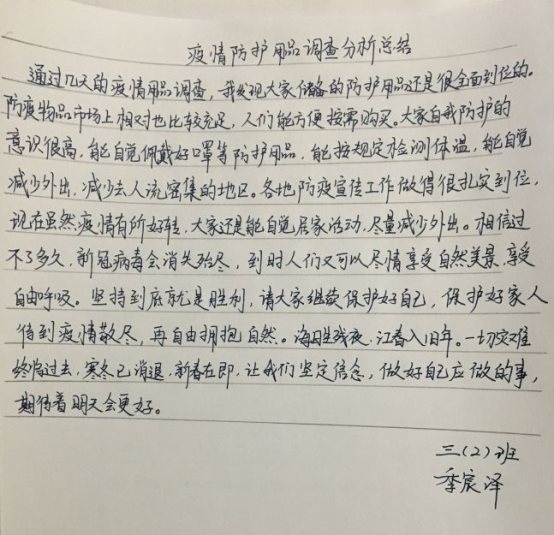 疫情防护用品调查分析总结
通过几天的疫情用品调查，我发现大家储备的防护用品还是很全面到位的。
防疫物品市场上相对也比较充足，人们能方便按需购买。大家自我防护的
意识很高，能自觉佩戴好口罩等防护用品，能按规定检测体温，能自觉
减少外出，减少去人流密集的地区。各地防疫宣传工作做得很扎实到位，
现在虽然疫情有所好转，大家还是能自觉居家活动，尽量减少外出。相信过
不了多久，新冠病毒会消失殆尽，到时人们又可以尽情享受自然美景，享受
自由呼吸。坚持到底就是胜利，请大家继续保护好自己，保护好家人
待到疫情散尽，再自由拥抱自然。海日生残夜，江春入旧年。一切灾难
终临过去，寒冬已消退，新春在即，让我们坚定信念，做好自己应做的事，
期待着明天会更好。
三（2）班
季宸泽